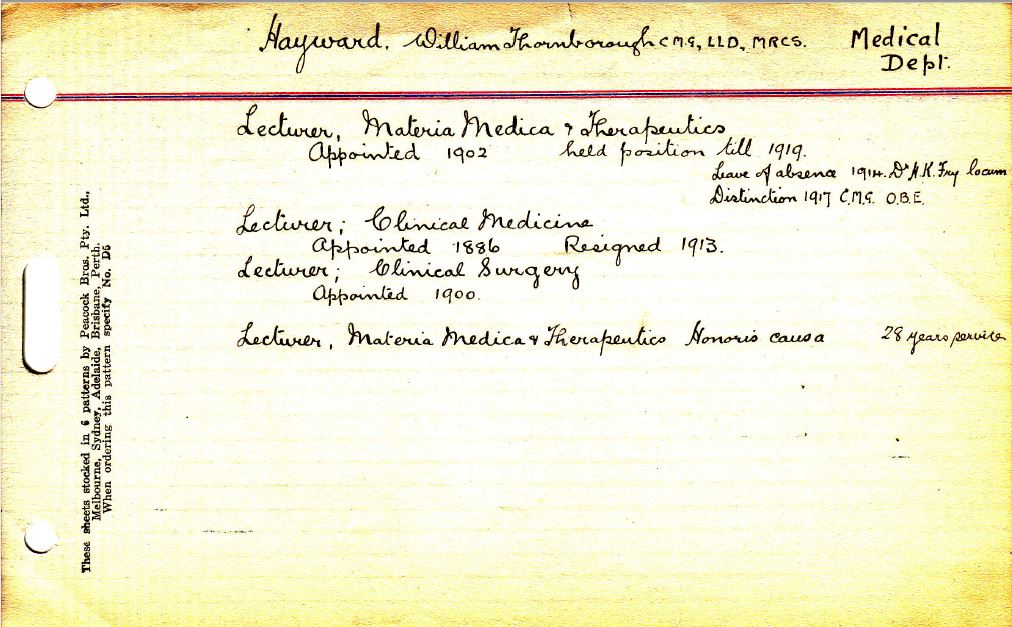 Hayward. William Thornborough C.M.G, LLD, MRCS. Medical
Dept.
Lecturer, Materia Medica & Therapeutics
Appointed 1902 held position till 1919.
Leave of absence 1914. Dr H.K. Fry locum
Distinction 1917 C.M.G. O.B.E.
Lecturer; Clinical Medicine
Appointed 1886 Resigned 1913.
Lecturer; Clinical Surgery
Appointed 1900.
Lecturer, Materia Medica & Therapeutics Honoris causa 28 years service
These sheets stocked in 6 patterns by Peacock Bros. Pty. Ltd.,
Melbourne, Sydney, Adelaide, Brisbane, Perth.
When ordering this pattern specify No. D5